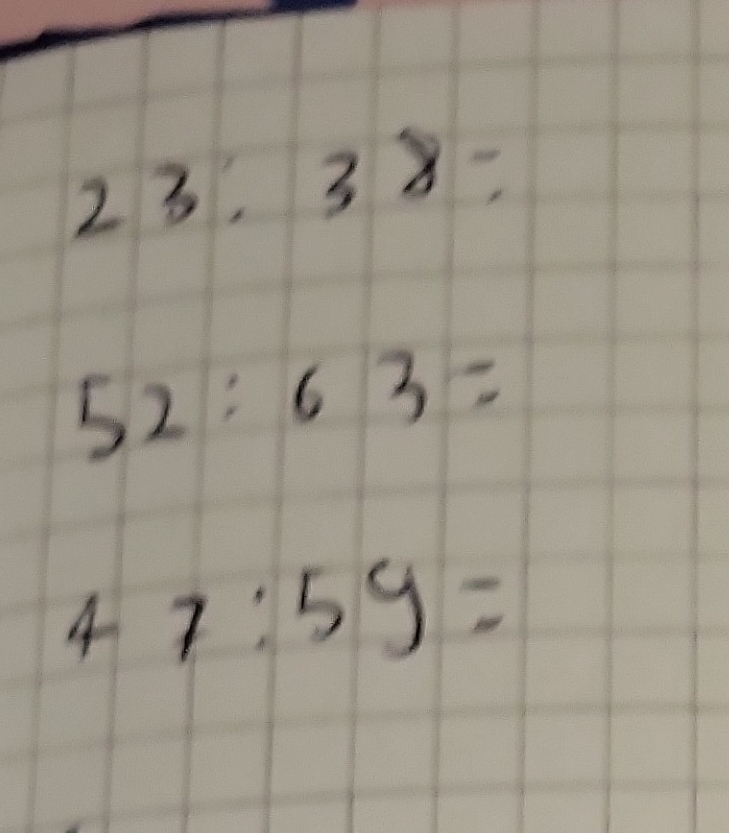 23:38=
52:63=
47:59=